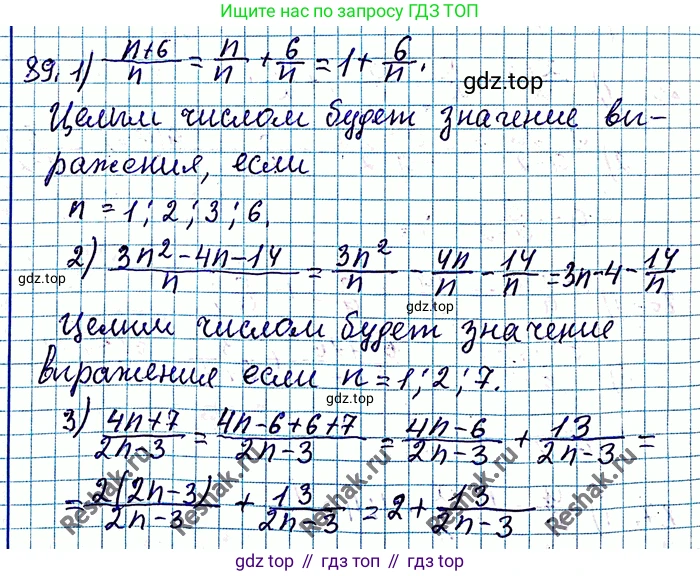 Ещё больше решебников по запросу ГДЗ ТОП
89. 1) (n+6)/n = n/n + 6/n = 1 + 6/n.
gdz.top
Целым числом будет значение вы-
ражения, если
n = 1; 2; 3; 6.
2) (3n² - 4n - 14)/n = 3n²/n - 4n/n - 14/n = 3n - 4 - 14/n
gdz.top
gdz.top
Целым числом будет значение
выражения если n = 1; 2; 7.
3) (4n+7)/(2n-3) = (4n-6+6+7)/(2n-3) = (4n-6)/(2n-3) + 13/(2n-3) =
= 2(2n-3)/(2n-3) + 13/(2n-3) = 2 + 13/(2n-3)
Reshak.ru
Reshak.ru
Reshak.ru
Reshak.ru
gdz top // гдз топ // gdz.top